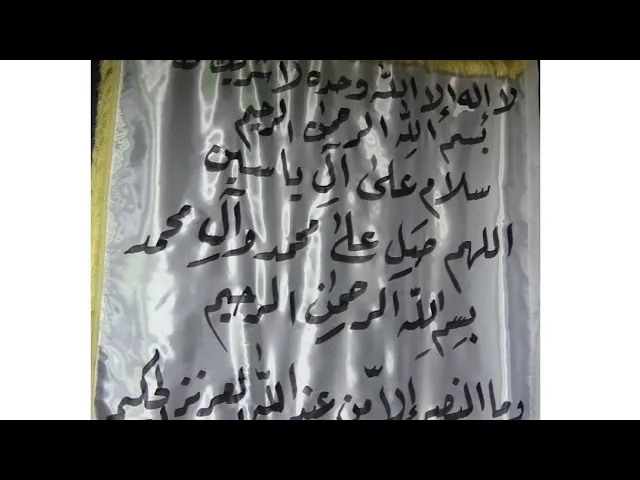 لا إله إلا الله وحده لا شريك له
بسم اللهِ الرحمن الرحيم
سلام على آلِ ياسين
اللهم صلِ على محمد وآلِ محمد
بِسِم اللهِ الرحمن الرحيم
وما النصر إلا من عند الله العزيز الحكيم